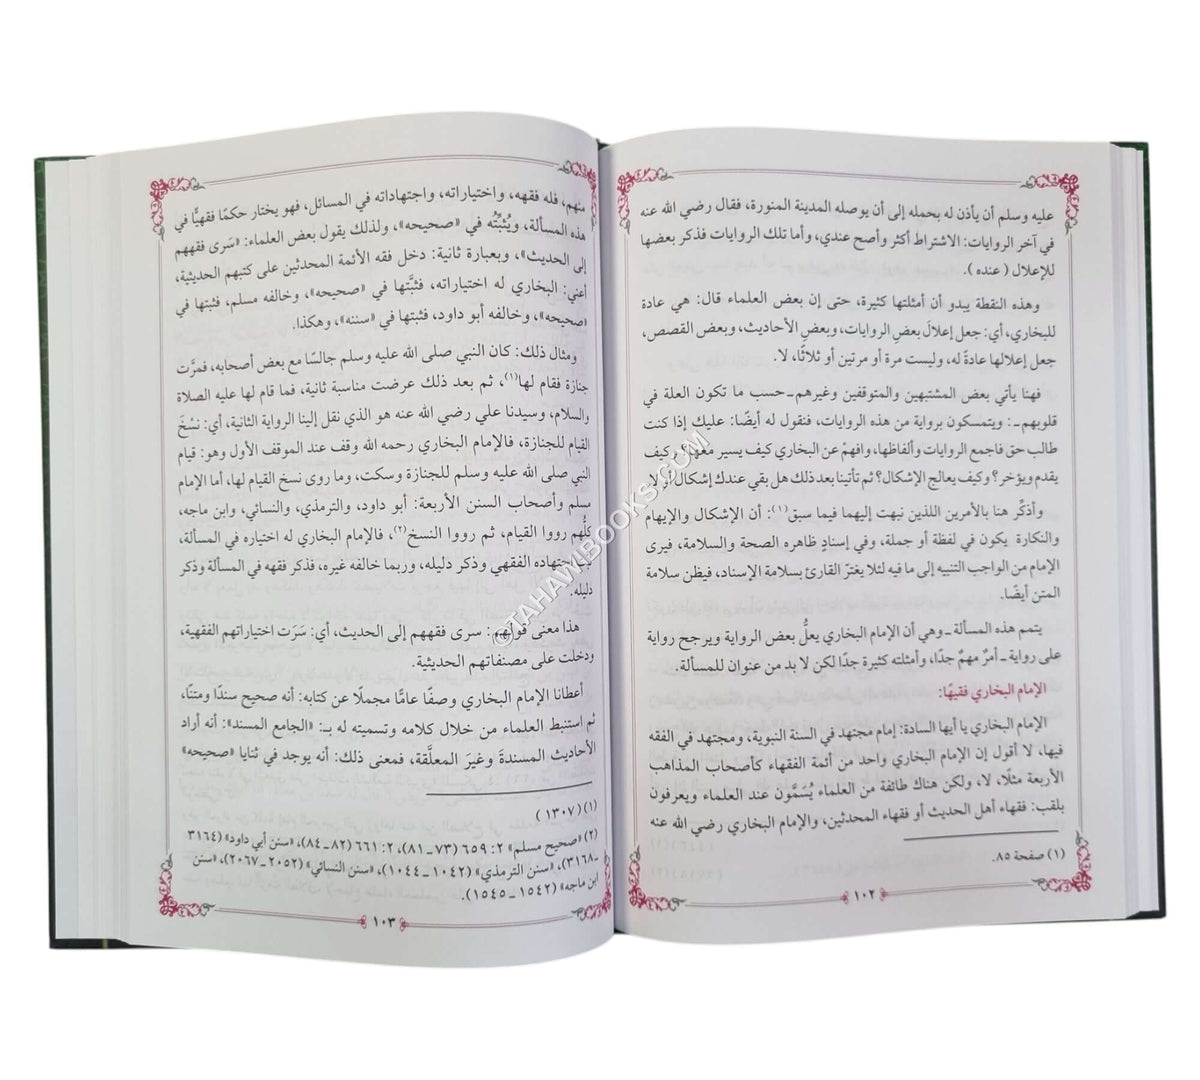 عليه وسلم أن يأذن له بحمله إلى أن يوصله المدينة المنورة، فقال رضي الله عنه
في آخر الروايات: الاشتراط أكثر وأصح عندي، وأما تلك الروايات فذكر بعضها
للإعلال (عنده).
وهذه النقطة يبدو أن أمثلتها كثيرة، حتى إن بعض العلماء قال: هي عادة
للبخاري، أي: جعل إعلالَ بعضِ الروايات، وبعضِ الأحاديث، وبعض القصص،
جعل إعلالها عادةً له، وليست مرة أو مرتين أو ثلاثًا، لا.
فهنا يأتي بعض المشتبهين والمتوقفين وغيرهم ـ حسب ما تكون العلة في
قلوبهم ـ: ويتمسكون برواية من هذه الروايات، فنقول له أيضًا: عليك إذا كنت
طالب حق فاجمع الروايات وألفاظها، وافهمْ عن البخاري كيف يسير معها، وكيف
يقدم ويؤخر؟ وكيف يعالج الإشكال؟ ثم تأتينا بعد ذلك هل بقي عندك إشكال أو لا.
وأذكِّر هنا بالأمرين اللذين نبهت إليهما فيما سبق(١): أن الإشكال والإيهام
والنكارة يكون في لفظة أو جملة، وفي إسنادٍ ظاهره الصحة والسلامة، فيرى
الإمام من الواجب التنبيه إلى ما فيه لئلا يغترّ القارئ بسلامة الإسناد، فيظن سلامة
المتن أيضًا.
يتمم هذه المسألة ـ وهي أن الإمام البخاري يعلُّ بعض الرواية ويرجح رواية
على رواية ـ أمرٌ مهمٌ جدًا، وأمثلته كثيرة جدًا لكن لا بد من عنوان للمسألة.
الإمام البخاري فقيهًا:
الإمام البخاري يا أيها السادة: إمام مجتهد في السنة النبوية، ومجتهد في الفقه
فيها، لا أقول إن الإمام البخاري واحد من أئمة الفقهاء كأصحاب المذاهب
الأربعة مثلًا، لا، ولكن هناك طائفة من العلماء يُسَمَّون عند العلماء ويعرفون
بلقب: فقهاء أهل الحديث أو فقهاء المحدثين، والإمام البخاري رضي الله عنه
(١) صفحة ٨٥.
١٠٢
منهم، فله فقهه، واختياراته، واجتهاداته في المسائل، فهو يختار حكمًا فقهيًّا في
هذه المسألة، ويُثبِّتُه في «صحيحه»، ولذلك يقول بعض العلماء: «سَرى فقههم
إلى الحديث»، وبعبارة ثانية: دخل فقه الأئمة المحدثين على كتبهم الحديثية،
أعني: البخاري له اختياراته، فثبَّتها في «صحيحه»، وخالفه مسلم، فثبتها في
«صحيحه»، وخالفه أبو داود، فثبتها في «سننه»، وهكذا.
ومثال ذلك: كان النبي صلى الله عليه وسلم جالسًا مع بعض أصحابه، فمرَّت
جنازة فقام لها(١)، ثم بعد ذلك عرضت مناسبة ثانية، فما قام لها عليه الصلاة
والسلام، وسيدنا علي رضي الله عنه هو الذي نقل إلينا الرواية الثانية، أي: نسْخَ
القيام للجنازة، فالإمام البخاري رحمه الله وقف عند الموقف الأول وهو: قيام
النبي صلى الله عليه وسلم للجنازة وسكت، وما روى نسخ القيام لها، أما الإمام
مسلم وأصحاب السنن الأربعة: أبو داود، والترمذي، والنسائي، وابن ماجه،
كلُّهم رووا القيام، ثم رووا النسخ(٢)، فالإمام البخاري له اختياره في المسألة،
اجتهاده الفقهي وذكر دليله، وربما خالفه غيره، فذكر فقهه في المسألة وذكر
دليله.
هذا معنى قولهم: سرى فقههم إلى الحديث، أي: سَرَت اختياراتهم الفقهية،
ودخلت على مصنفاتهم الحديثية.
أعطانا الإمام البخاري وصفًا عامًّا مجملًا عن كتابه: أنه صحيح سندًا ومتنًا،
ثم استنبط العلماء من خلال كلامه وتسميته له بـ: «الجامع المسند»: أنه أراد
الأحاديث المسندةَ وغيرَ المعلَّقة، فمعنى ذلك: أنه يوجد في ثنايا «صحيحه»
(١) (١٣٠٧)
(٢) «صحيح مسلم» ٢: ٦٥٩ (٧٣ ـ ٨١)، ٢: ٦٦١ (٨٢ ـ ٨٤)، «سنن أبي داود» (٣١٦٤
ـ ٣١٦٨)، «سنن الترمذي» (١٠٤٢ ـ ١٠٤٤)، «سنن النسائي» (٢٠٥٢ ـ ٢٠٦٧)، «سنن
ابن ماجه» (١٥٤٢ ـ ١٥٤٥).
١٠٣
©TAHAWIBOOKS.COM